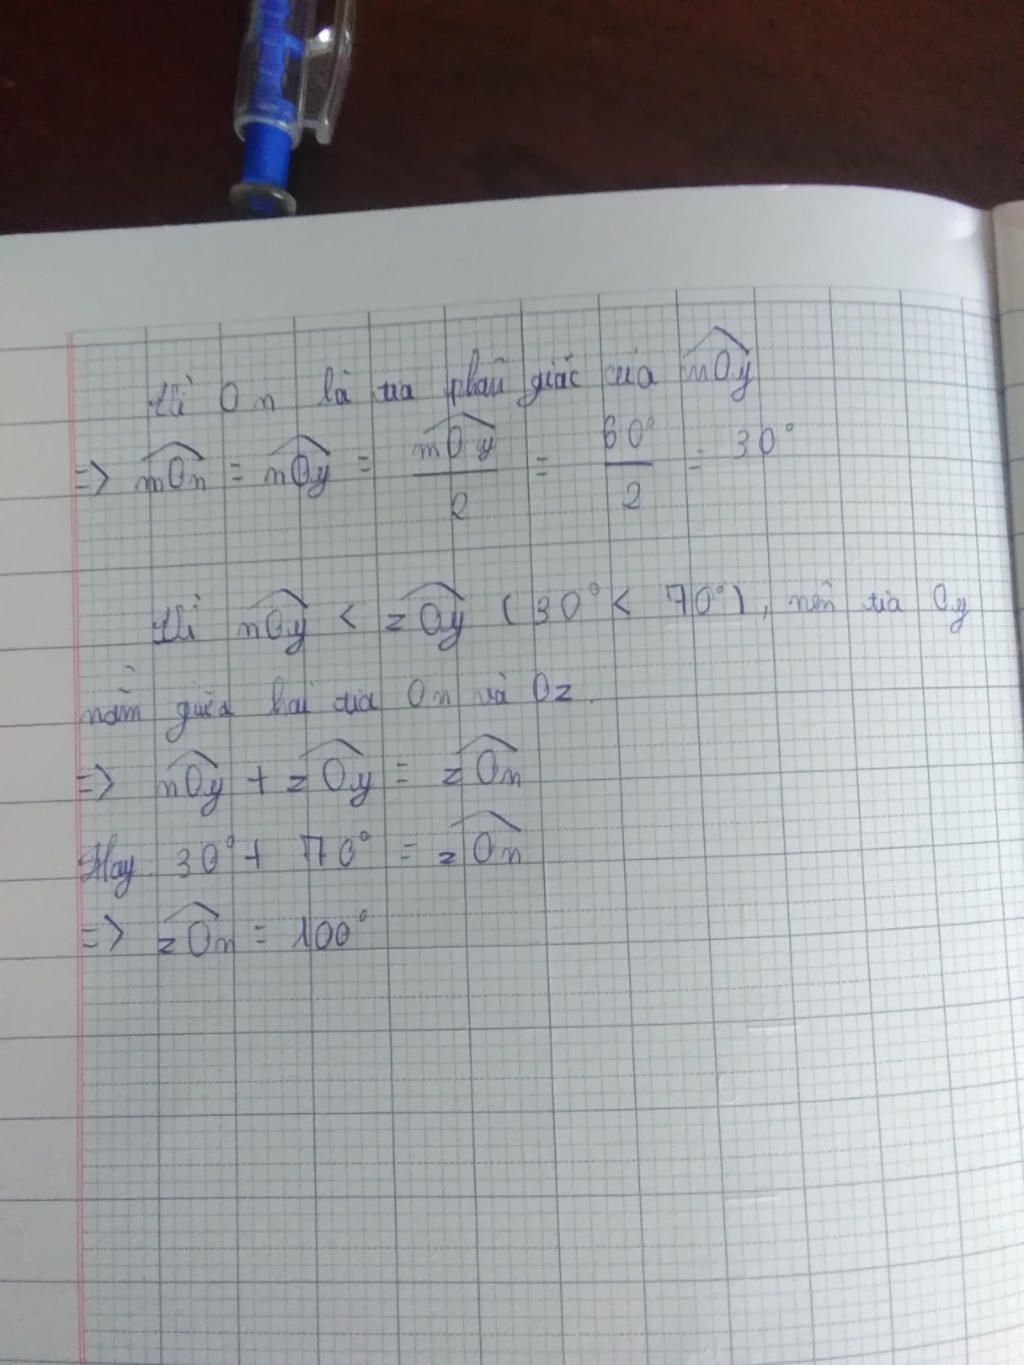 Vì On là tia phân giác của mOy
=> mOn = nOy = mOy/2 = 60°/2 = 30°
Vì nOy < zOy (30° < 70°), nên tia Oy
nằm giữa hai tia On và Oz.
=> nOy + zOy = zOn
Hay 30° + 70° = zOn
=> zOn = 100°